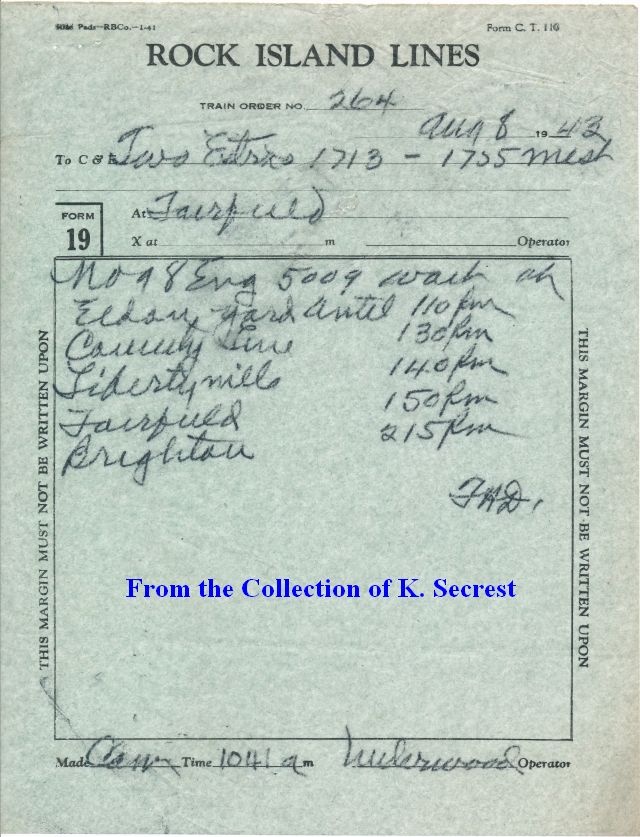 Pads—RBCo.—1-41 Form C. T. 110
ROCK ISLAND LINES
TRAIN ORDER NO. 264
Aug 8 1943
To C & E Two Extras 1713 - 1755 West
FORM
19
At Fairfield
X at m Operator
No 98 Eng 5009 wait at
Eldon yard until 110 pm
County Line 130 pm
Libertyville 140 pm
Fairfield 150 pm
Brighton 215 pm
THIS MARGIN MUST NOT BE WRITTEN UPON
THIS MARGIN MUST NOT BE WRITTEN UPON
From the Collection of K. Secrest
Made Com Time 1041 a m Underwood Operator